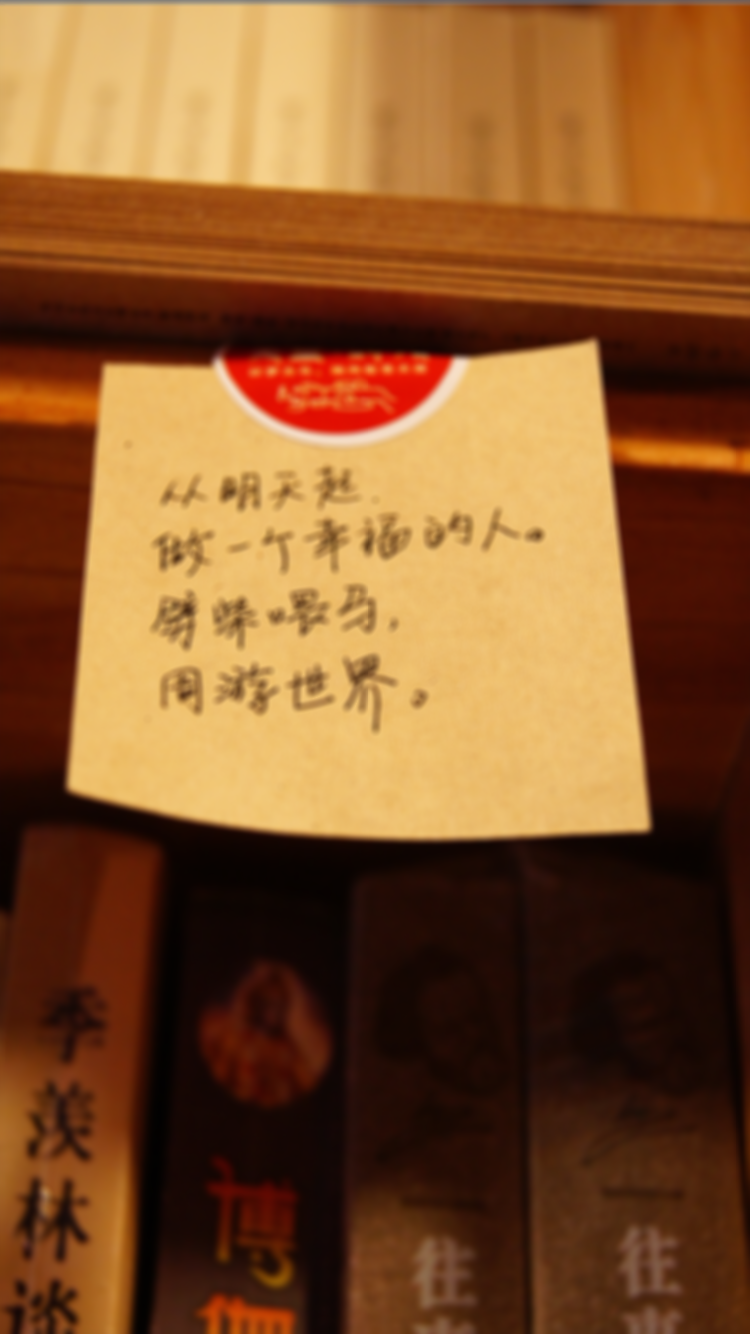 从明天起.
做一个幸福的人。
劈柴喂马,
周游世界。
季羡林谈
博
往事
往事